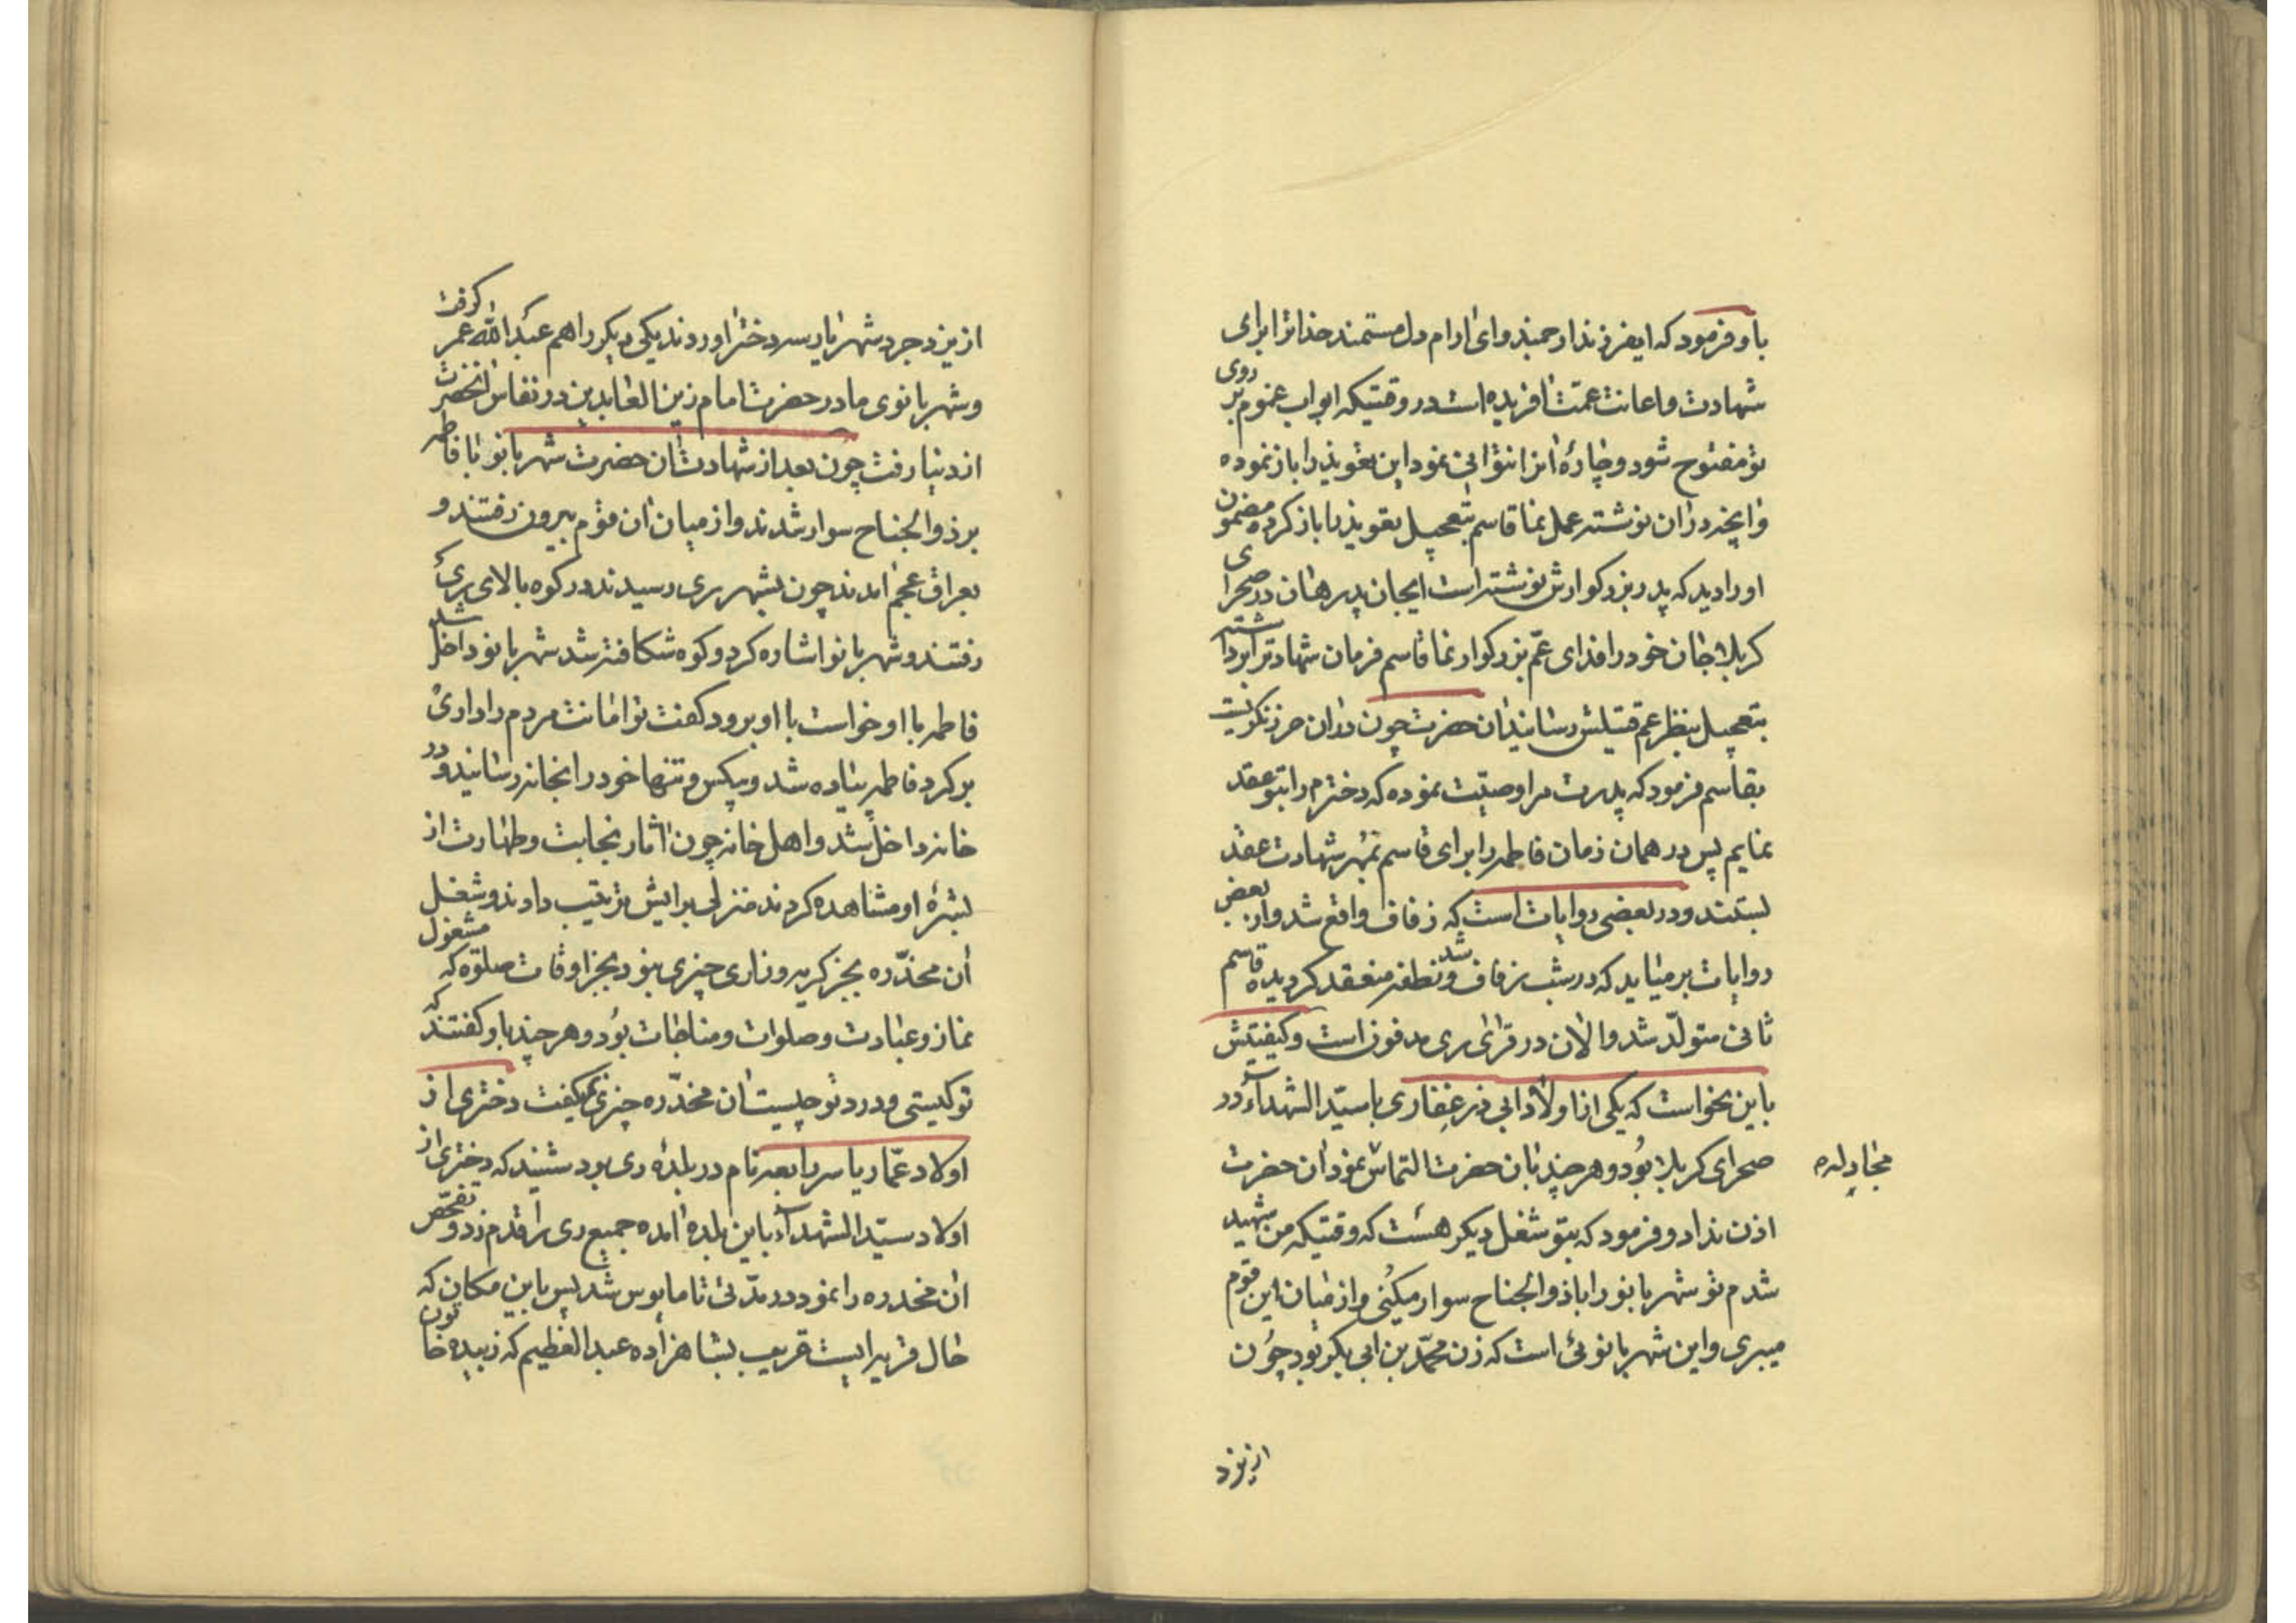 باو فرمود که ایفرزند ارجمند وای ارام دل مستمند خدا ترا برای
شهادت و اعانت عمّت افریده است در وقتیکه ابواب غموم بر روی
تو مفتوح شود و چارهٔ انرا نتوانی نمود این تعویذ را باز نموده
وانچه در ان نوشته عمل نما قاسم بتعجیل تعویذ را باز کرده مضمون
او را دید که پدر بزرکوارش نوشته است ایجان پدر هان در صحرای
کربلا جان خود را فدای عمّ بزرکوار نما قاسم فرمان شهادترا برداشته
بتعجیل بنظر عم قتیلش رسانید ان حضرت چون در ان حرز نکریست
بقاسم فرمود که پدرت مرا وصیّت نموده که دخترم را بتو عقد
نمایم پس در همان زمان فاطمه را برای قاسم بمهر شهادت عقد
بستند و در بعضی روایات است که زفاف واقع شد و از بعض
روایات بر میاید که در شب زفاف شد و نطفه منعقد کردیده قاسم
ثانی متولّد شد و الان در قرای ری مدفون است و کیفیتش
باین نحو است که یکی از اولاد ابی ذر غفاری با سیّد الشهداء در
صحرای کربلا بود و هر چند بان حضرت التماس نمود ان حضرت
مجادله
اذن نداد و فرمود که بتو شغل دیکر هست که وقتیکه من شهید
شدم تو شهربانو را با ذو الجناح سوار میکنی و از میان این قوم
میبری و این شهربانوئی است که زن محمّد بن ابی بکر بود چون
از یزد
از یزدجرد شهریار سه دختر اوردند یکی دیکر را هم عبد الله عمر کرفت
و شهربانوی مادر حضرت امام زین العابدین در نفاس انحضرت
از دنیا رفت چون بعد از شهادت ان حضرت شهربانو با فاطمه
بر ذو الجناح سوار شدند و از میان ان قوم بیرون رفتند و
بعراق عجم امدند چون بشهر ری رسیدند در کوه بالای ری
رفتند و شهربانو اشاره کرد و کوه شکافته شد شهربانو داخل شد
فاطمه با او خواست با او برود کفت تو امانت مردم را داری
بر کرد فاطمه پیاده شد و بیکس و تنها خود را بخانه رسانید و در
خانه داخل شد و اهل خانه چون اثار نجابت و طهارت از
بشرهٔ او مشاهده کردند منزلی برایش ترتیب دادند و شغل
ان مخدّره بجز کریه و زاری چیزی نبود بجز اوقات صلوة که مشغول
نماز و عبادت و صلوات و مناجات بود و هر چند باو کفتند که
تو کیستی و درد تو چیست ان مخدّره چیزی نمیکفت دختری از
اولاد عمّار یاسر رابعه نام در بلدهٔ ری بود شنید که دختری از
اولاد سیّد الشهداء باین بلده امده جمیع ری را قدم زد و تفحّص
ان مخدره را نمود در مدّتی تا مایوس شد پس باین مکان که
حال قریه ایست قریب بشاهزاده عبد العظیم که زبیده خاتون